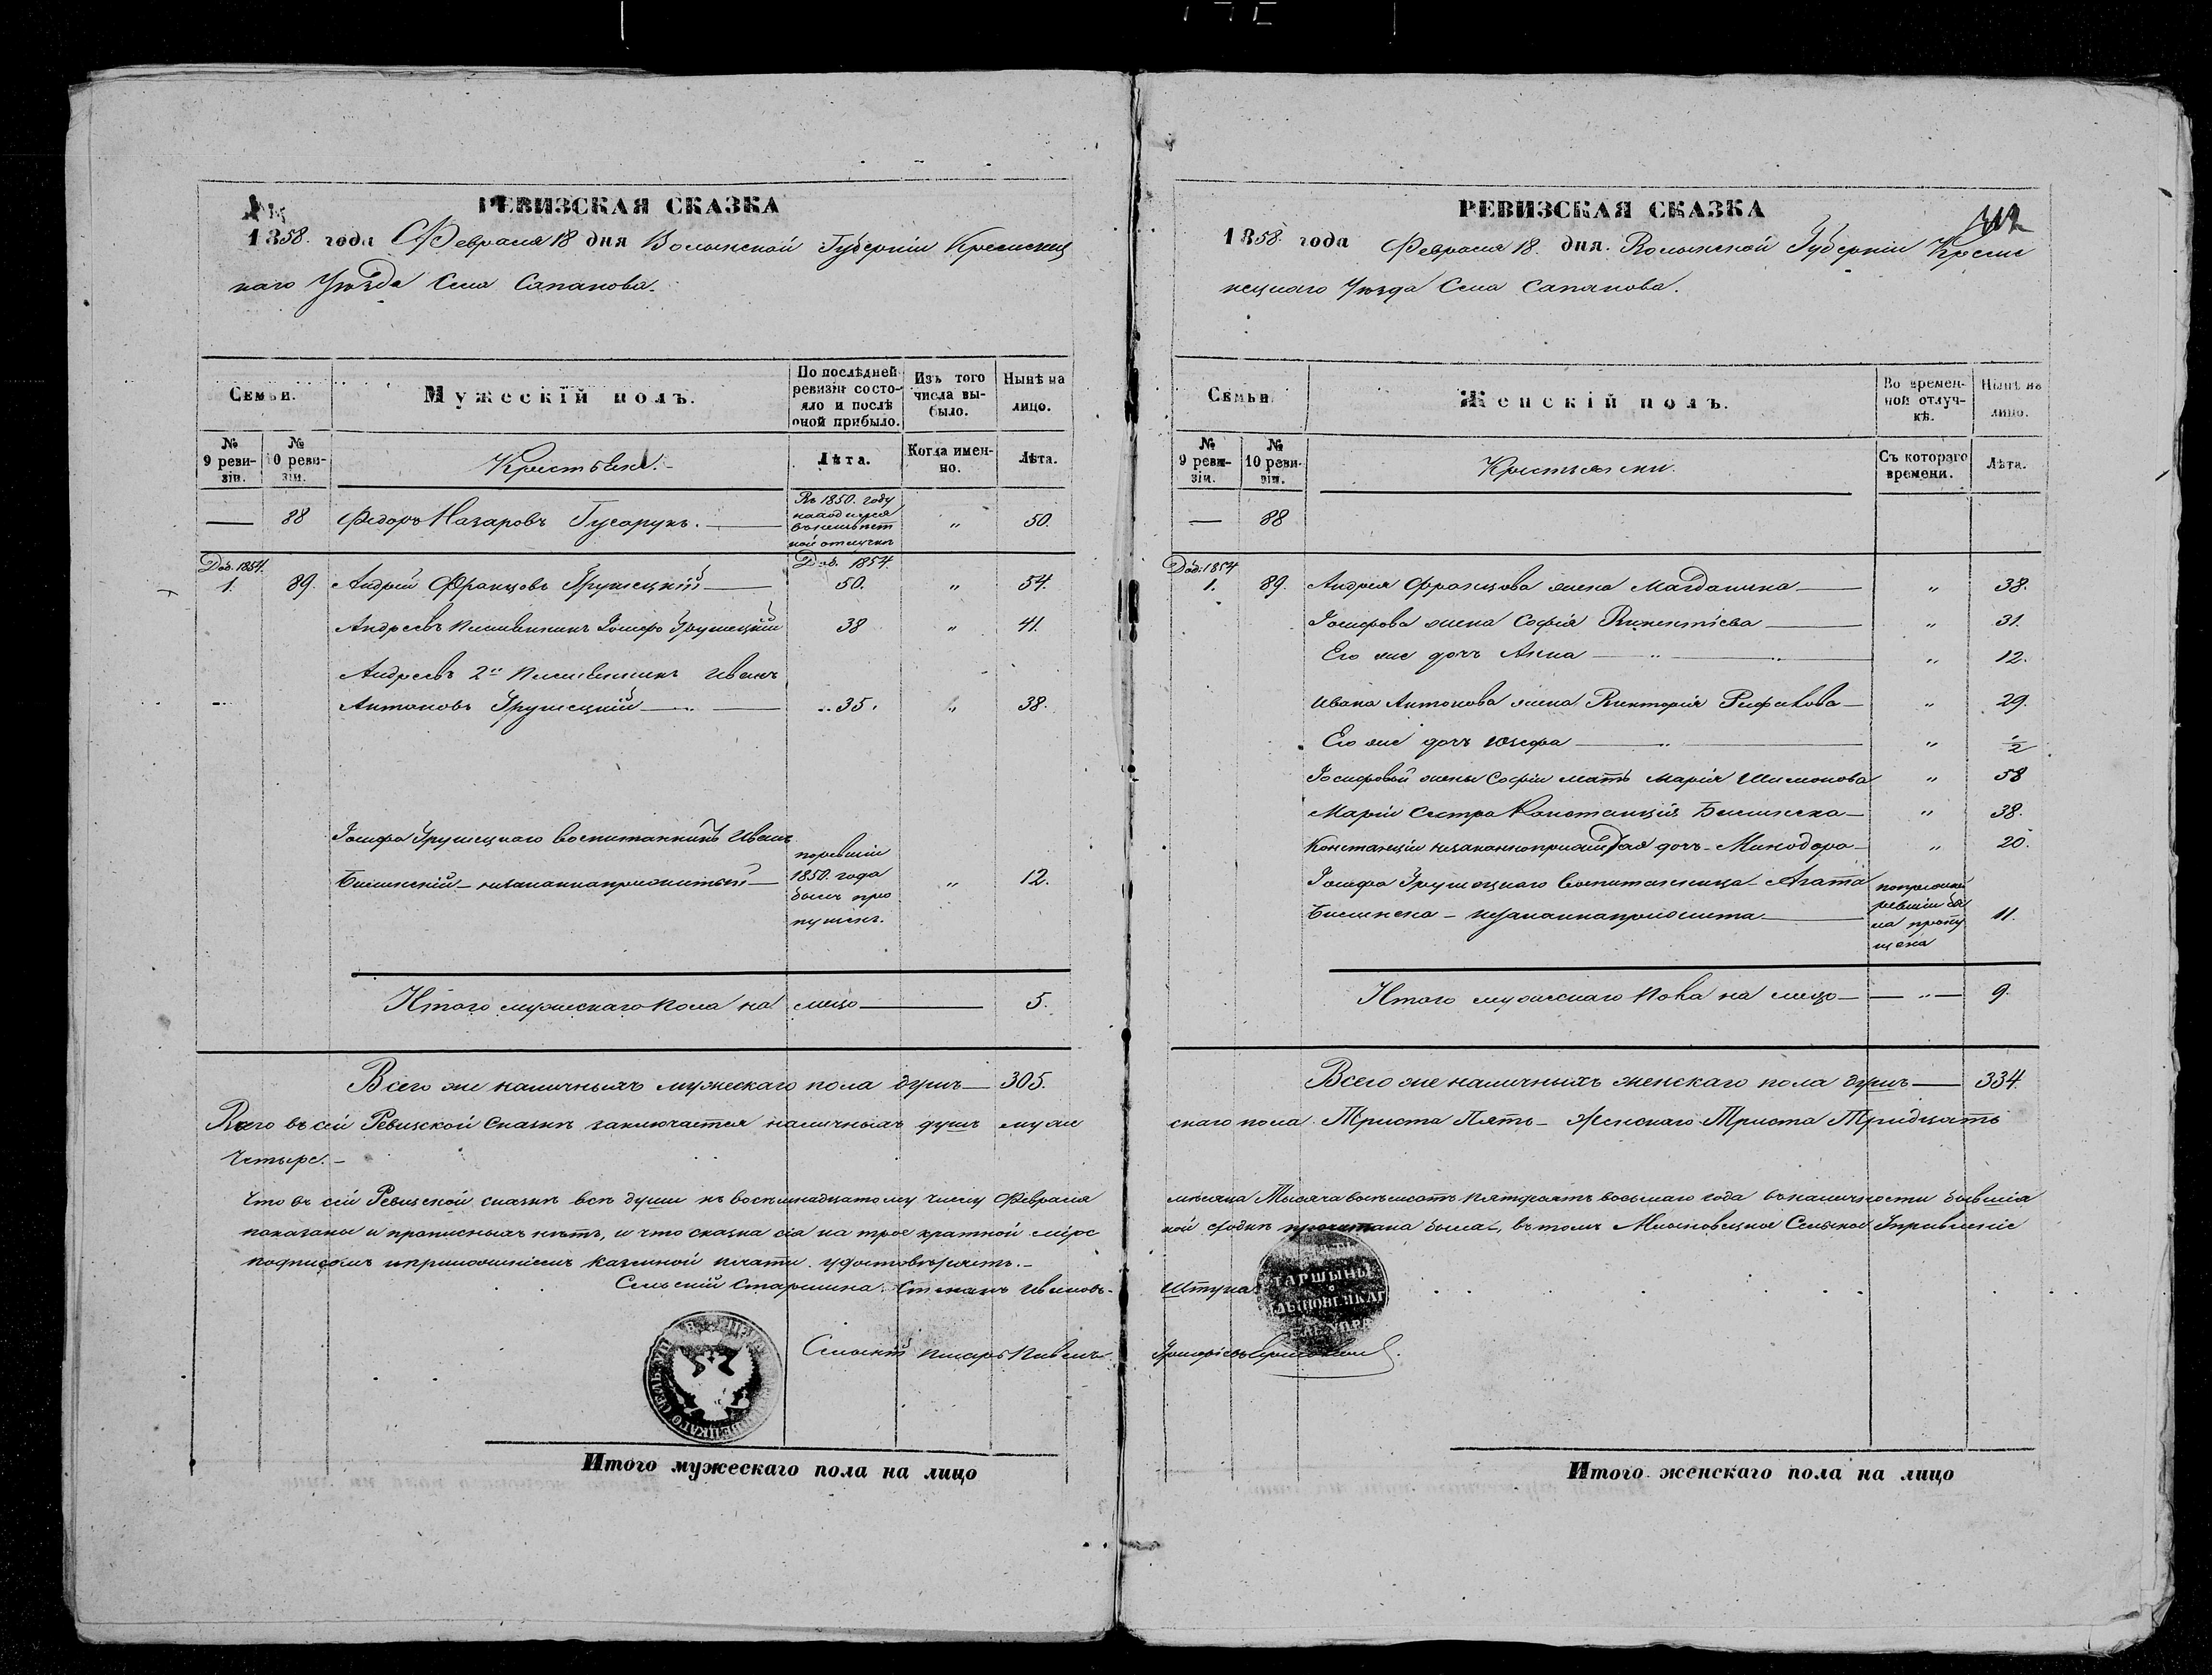 РЕВИЗСКАЯ СКАЗКА
1858. года Февраля 18 дня Волынской Губерніи Кременец
каго Уѣзда Села Сапанова.
Семьи.
Мужескій полъ.
По послѣдней ревизіи состояло и послѣ оной прибыло.
Изъ того числа выбыло.
Нынѣ на лицо.
№ 9 ревизіи.
№ 10 ревизіи.
Крестьяне.
Лѣта.
Когда именно.
Лѣта.
— 88 Федоръ Назаровъ Гусарукъ. — „ 50.
Въ 1850. году
находился
въ
ной отлучкѣ
Доб. 1854. Доб. 1854
1. 89. Андрей Францовъ Грушецкій — 50. „ 54.
Андреевъ племянникъ Іосифъ Грушецкій 38 „ 41.
Андреевъ 2й племянникъ Иванъ
Антоновъ Грушецкій — 35. „ 38.
Іосифа Грушецкаго воспитанникъ Иванъ
незаконноприжитый — „ 12.
по ревизіи
1850. года
былъ про
пущенъ.
Итого мужескаго пола на лицо — 5.
Всего же наличныхъ мужескаго пола душъ — 305.
Всего въ сей Ревизской сказкѣ заключается наличныхъ душъ муже
четыре. —
Что въ сей Ревизской сказкѣ всѣ души къ восемнадцатому числу Февраля
показаны и прописныхъ нѣтъ, и что сказка сія на трое кратной мірс
подписомъ и приложеніемъ казенной печати удостовѣряетъ. —
Сельскій Старшина Степанъ Ивановъ
Сельскій писарь Павелъ
Итого мужескаго пола на лицо
РЕВИЗСКАЯ СКАЗКА
312
1858. года Февраля 18. дня. Волынской Губерніи Креме
нецкаго Уѣзда Села Сапанова.
Семьи.
Женскій полъ.
Во временной отлучкѣ.
Нынѣ на лицо.
№ 9 ревизіи.
№ 10 ревизіи.
Крестьянки.
Съ котораго времени.
Лѣта.
— 88
Доб: 1854
1. 89. Андрея Францова жена Магдалина — „ 38.
Іосифова жена Софія Викентіева — „ 31.
Его же дочь Анна — „ 12.
Ивана Антонова жена Викторія — „ 29.
Его же дочь Юзефа — „ ½
Іосифовой жены Софіи мать Марія Шимонова „ 58
Маріи сестра Констанція — „ 38.
Констанціи незаконноприжитая дочь — Минодора — „ 20.
Іосифа Грушецкаго воспитанница — Агата
незаконноприжита — 11.
по прошлой
ревизіи бы
ла пропу
щена
Итого мужескаго пола на лицо — „ — 9.
Всего же наличныхъ женскаго пола душъ — 334.
скаго пола Триста Пять — Женскаго Триста Тридцать
мѣсяца Тысяча восемьсотъ пятьдесятъ восьмаго года въ наличности бывшія
кой сходкѣ прочитана была, въ томъ Млыновецкое Сельское Управленіе
Штука
ТАРШИНЫ
Итого женскаго пола на лицо